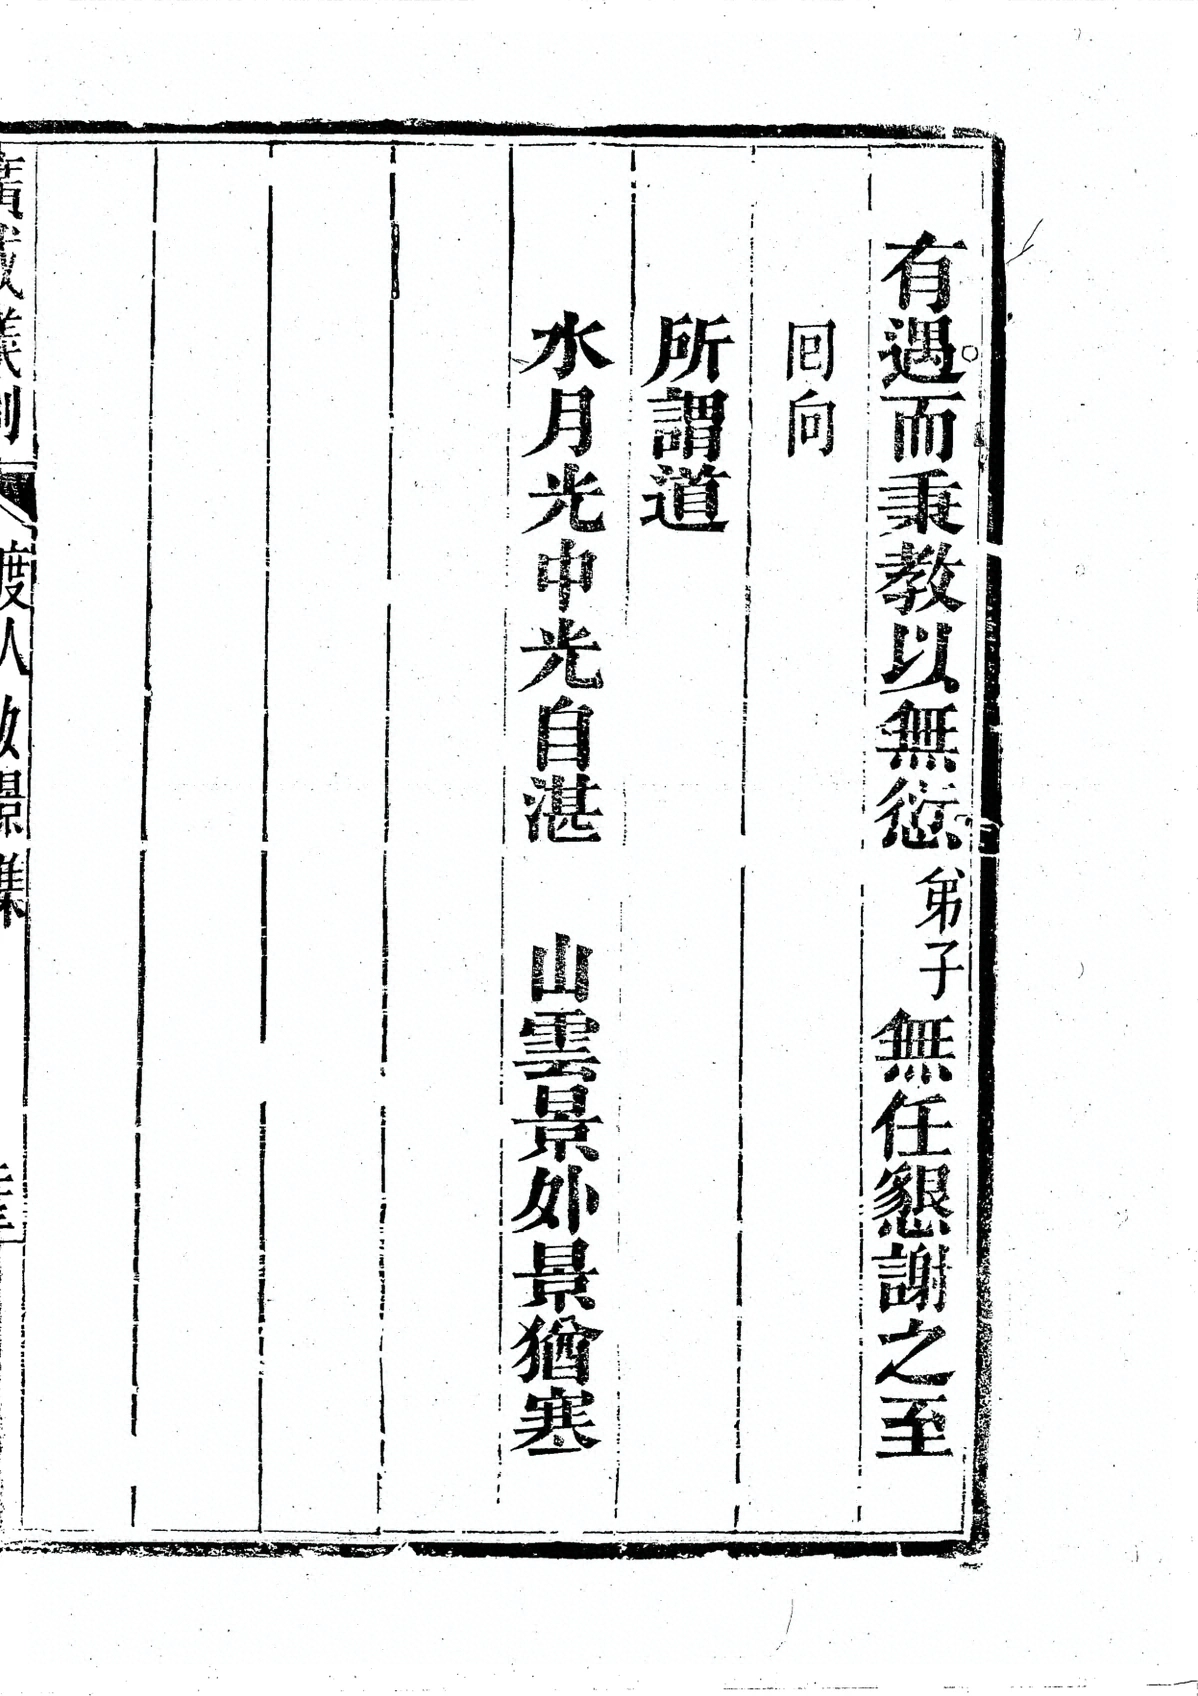 有遇而秉教以無愆弟子無任懇謝之至
回向
所謂道
水月光中光自湛 山雲景外景猶寒
廣成儀制 度人 集